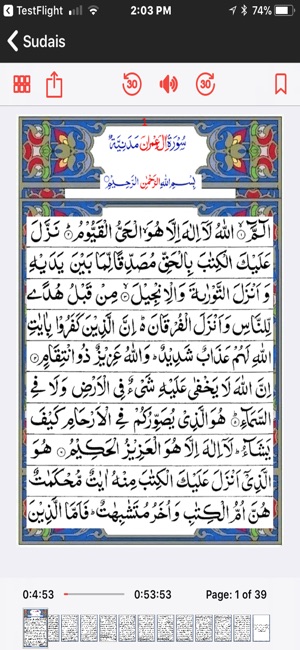 TestFlight 2:03 PM 74%
Sudais
30 30
سُوۡرَةُ اٰلِ عِمۡرٰنَ مَدَنِيَّةٌ
بِسۡمِ اللّٰهِ الرَّحۡمٰنِ الرَّحِيۡمِ
الٓمَّٓ ۙ اللّٰهُ لَاۤ اِلٰهَ اِلَّا هُوَ الۡحَىُّ الۡقَيُّوۡمُ ؕ نَزَّلَ
عَلَيۡكَ الۡكِتٰبَ بِالۡحَقِّ مُصَدِّقًا لِّمَا بَيۡنَ يَدَيۡهِ
وَاَنۡزَلَ التَّوۡرٰىةَ وَالۡاِنۡجِيۡلَ ۙ مِنۡ قَبۡلُ هُدًى
لِّلنَّاسِ وَاَنۡزَلَ الۡفُرۡقَانَ ؕ اِنَّ الَّذِيۡنَ كَفَرُوۡا بِاٰيٰتِ
اللّٰهِ لَهُمۡ عَذَابٌ شَدِيۡدٌ ؕ وَاللّٰهُ عَزِيۡزٌ ذُو انۡتِقَامٍ ؕ
اِنَّ اللّٰهَ لَا يَخۡفٰى عَلَيۡهِ شَىۡءٌ فِى الۡاَرۡضِ وَلَا فِى
السَّمَآءِ ؕ هُوَ الَّذِىۡ يُصَوِّرُكُمۡ فِى الۡاَرۡحَامِ كَيۡفَ
يَشَآءُ ؕ لَاۤ اِلٰهَ اِلَّا هُوَ الۡعَزِيۡزُ الۡحَكِيۡمُ هُوَ
الَّذِىۡۤ اَنۡزَلَ عَلَيۡكَ الۡكِتٰبَ مِنۡهُ اٰيٰتٌ مُّحۡكَمٰتٌ
هُنَّ اُمُّ الۡكِتٰبِ وَاُخَرُ مُتَشٰبِهٰتٌ ؕ فَاَمَّا الَّذِيۡنَ
0:4:53 0:53:53 Page: 1 of 39